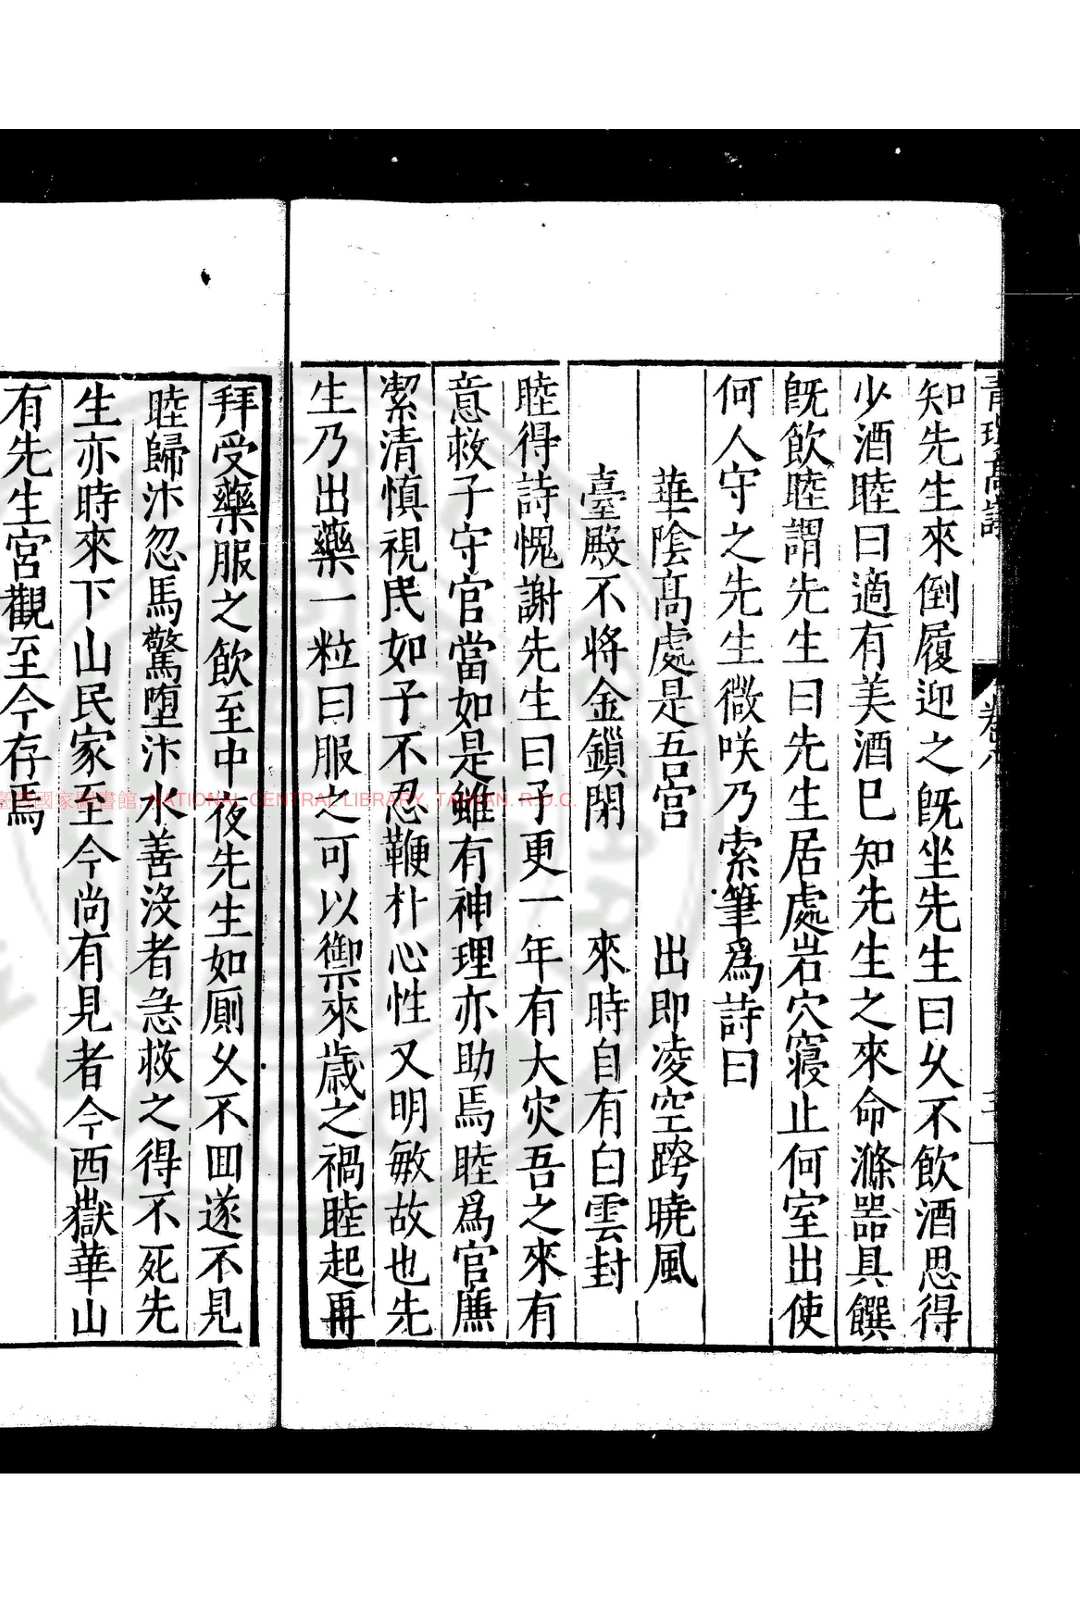 知先生來倒履迎之旣坐先生曰乆不飲酒思得
少酒睦曰適有美酒巳知先生之來命滌器具饌
旣飲睦謂先生曰先生居處岩穴寢止何室出使
何人守之先生微咲乃索筆爲詩曰
華陰髙處是吾宮 出即凌空跨曉風
臺殿不將金鎖閉 來時自有白雲封
睦得詩愧謝先生曰子更一年有大灾吾之來有
意救子守官當如是雖有神理亦助焉睦爲官廉
潔清慎視民如子不忍鞭朴心性又明敏故也先
生乃出藥一粒曰服之可以禦來歲之禍睦起再
拜受藥服之飲至中夜先生如厠乆不囬遂不見
睦歸汴忽馬驚墮汴水善沒者急救之得不死先
生亦時來下山民家至今尚有見者今西嶽華山
有先生宮觀至今存焉
國家圖書館, NATIONAL CENTRAL LIBRARY, TAIWAN. R.O.C.